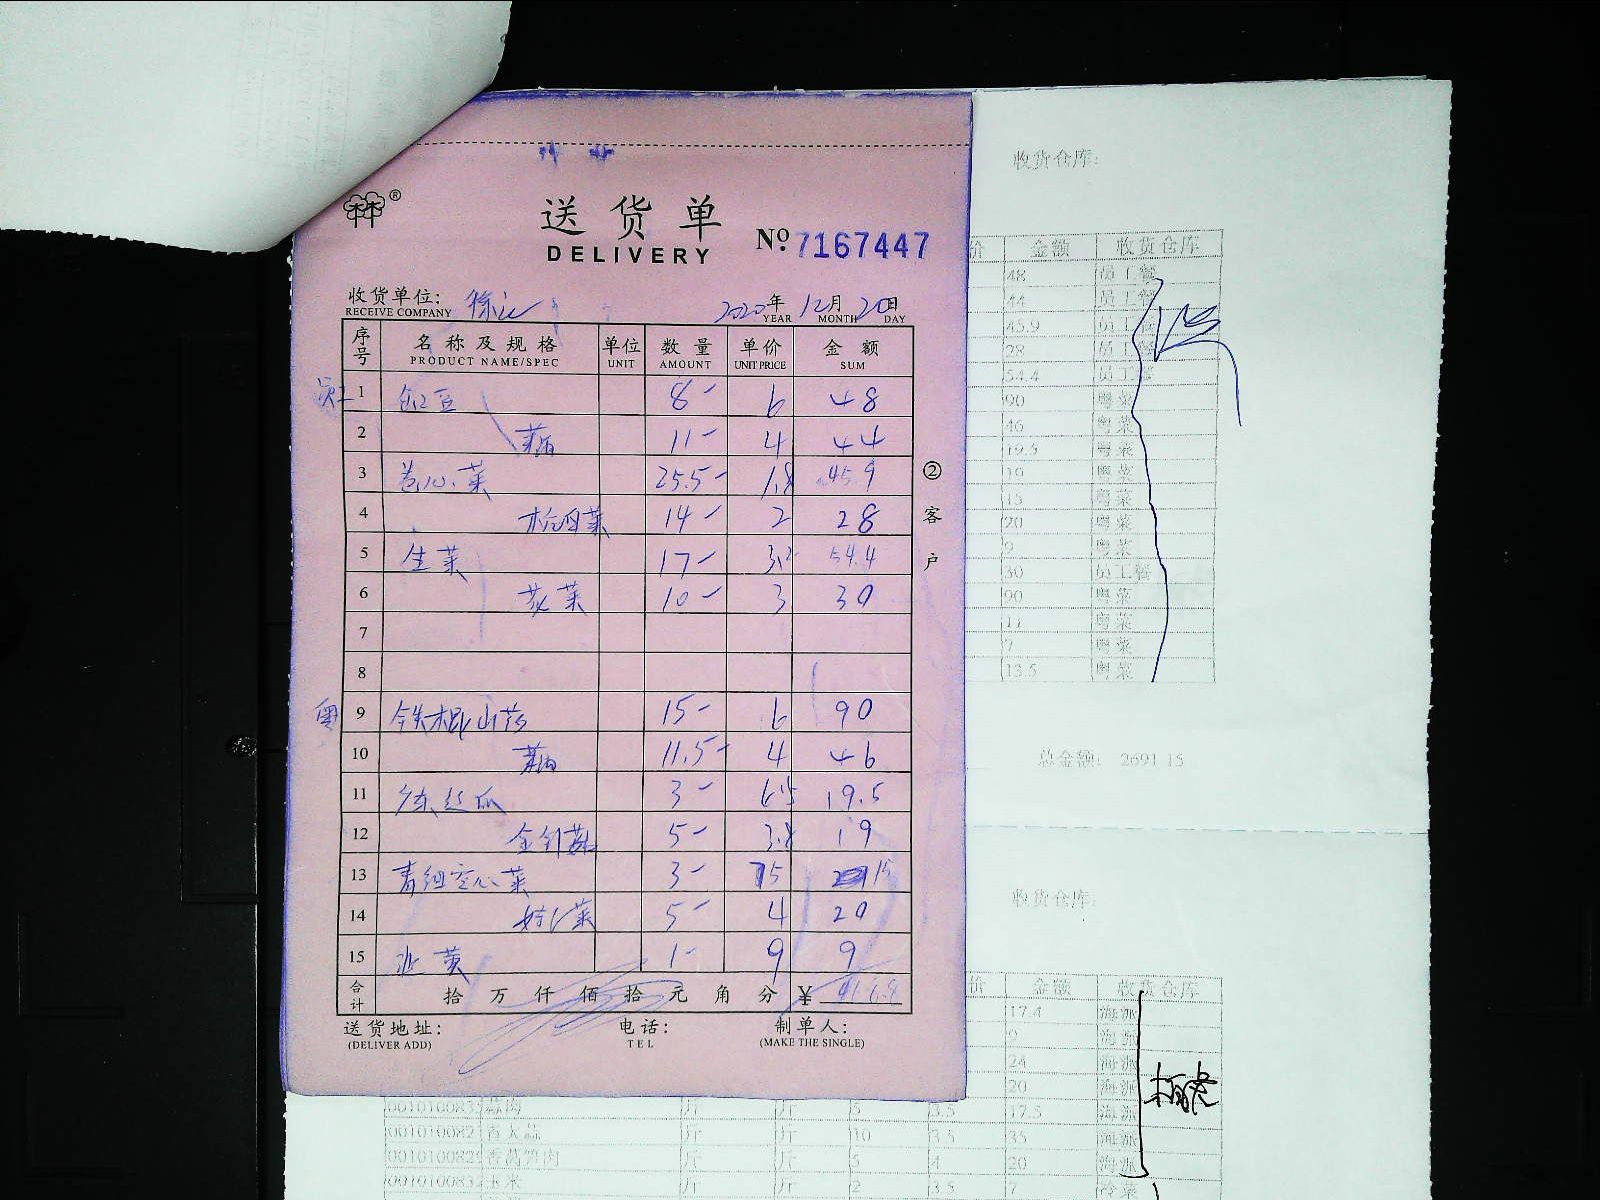 送货单
DELIVERY
№ 7167447
收货单位:
RECEIVE COMPANY
2020年 12月 20日
YEAR MONTH DAY
序号 名称及规格 单位 数量 单价 金额
PRODUCT NAME/SPEC UNIT AMOUNT UNIT PRICE SUM
员工 1 豇豆 8 6 48
2 11 4 44
3 卷心菜 25.5 1.8 45.9
4 杭白菜 14 2 28
5 生菜 17 3.2 54.4
6 菠菜 10 3 30
7
8
粤 9 铁棍山药 15 6 90
10 11.5 4 46
11 丝瓜 3 6.5 19.5
12 金针菇 5 3.8 19
13 青细空心菜 3 5 15
14 5 4 20
15 韭黄 1 9 9
合计 拾万仟佰拾元角分 ¥
送货地址: 电话: 制单人:
(DELIVER ADD) TEL (MAKE THE SINGLE)
② 客户
收货仓库:
价 金额 收货仓库
48 员工餐
44 员工餐
45.9 员工餐
28 员工餐
54.4 员工餐
90 粤菜
46 粤菜
19.5 粤菜
19 粤菜
15 粤菜
20 粤菜
9 粤菜
30 员工餐
90 粤菜
11 粤菜
7 粤菜
13.5 粤菜
总金额: 2691.15
收货仓库:
价 金额 收货仓库
17.4 海派
9 海派
24 海派
20 海派
斤 斤 5 3.5 17.5 海派
斤 斤 10 3.5 35 海派
斤 斤 5 4 20 海派
玉米 斤 斤 2 3.5 7 冷菜